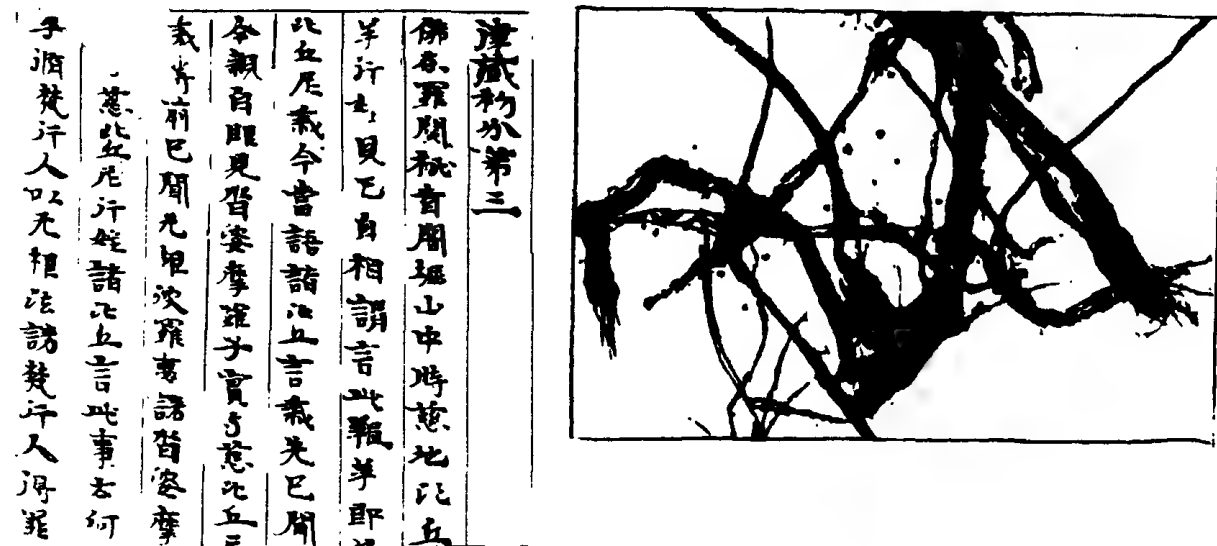 律藏初分第三
佛在羅閱祇耆闍堀山中時慈地比丘
羊行 見已自相謂言此羝羊即
比丘尼我今當語諸比丘言我先已聞
今親自眼見沓婆摩羅子實與慈比丘
我等前已聞无根波羅夷謗沓婆摩
慈比丘尼行婬諸比丘言此事云何
子清梵行人以无根法謗梵行人得罪